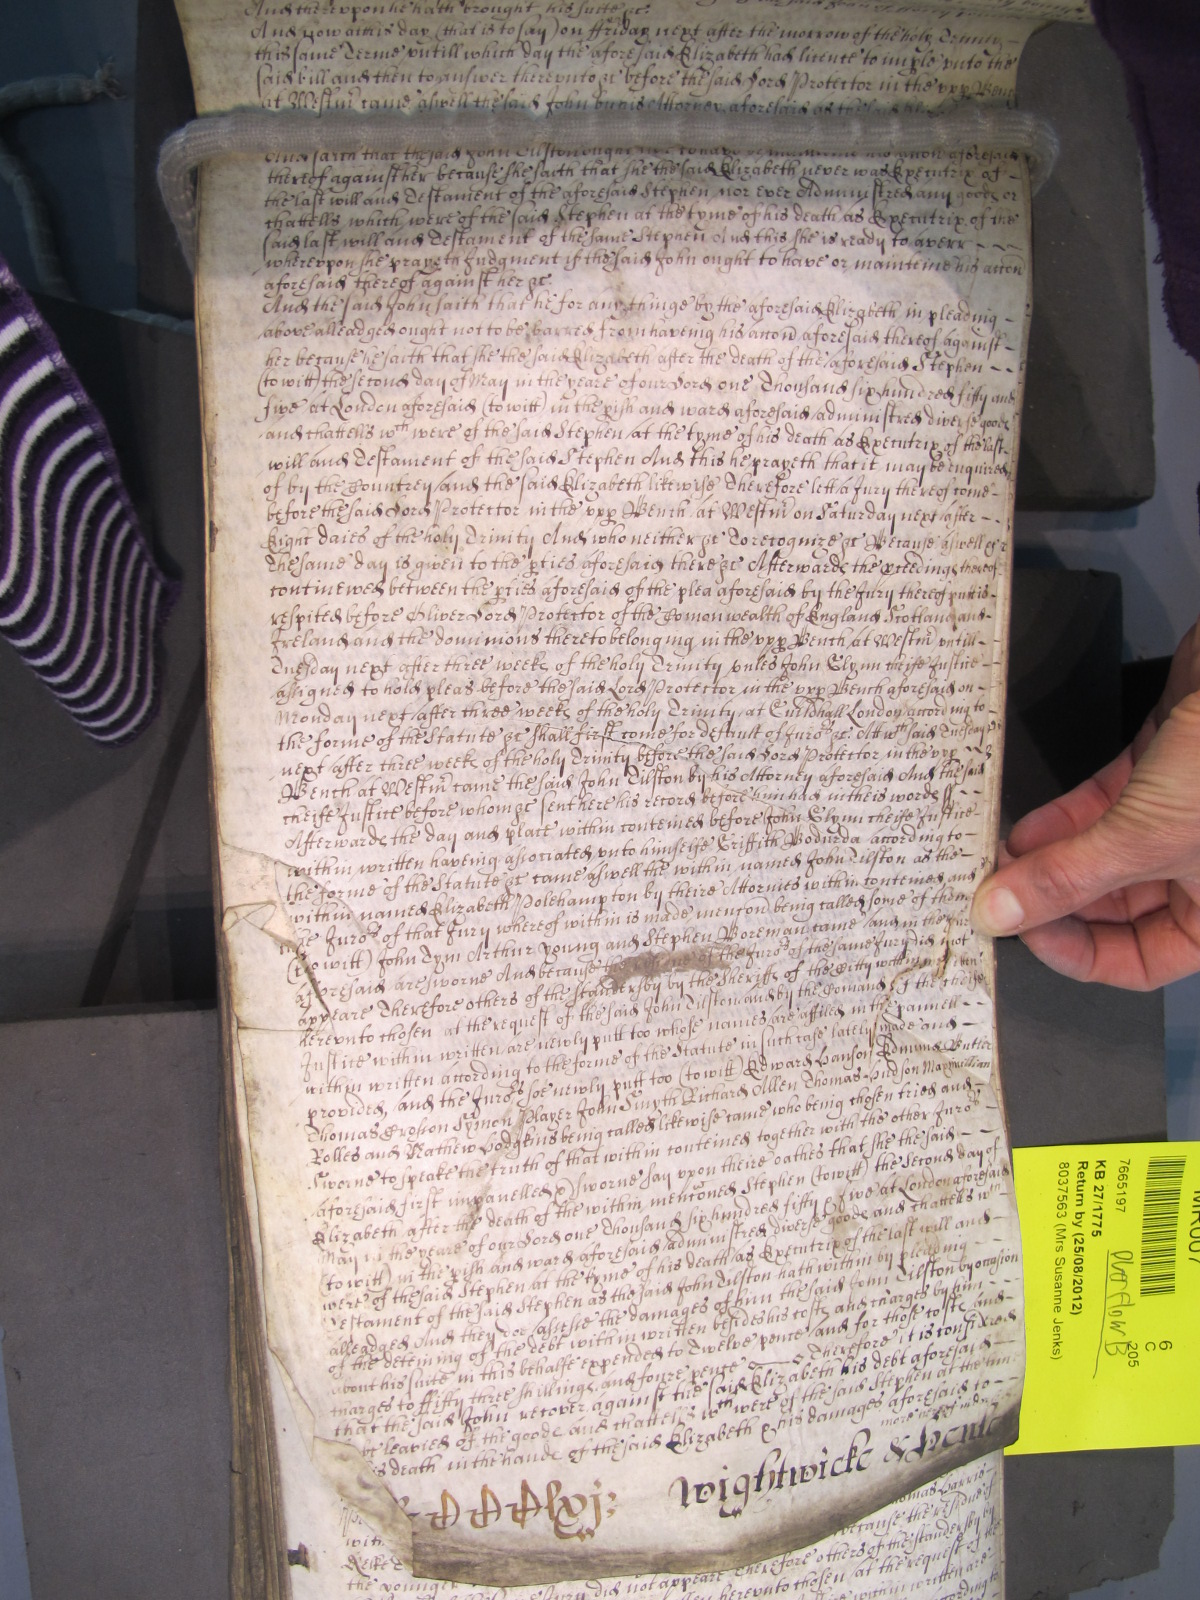 And thereupon he hath brought his suite &c.
And now att this day (that is to say) on ffriday next after the morrow of the holy Trinity
this same Terme untill which day the aforesaid Elizabeth had licence to imple unto the
said bill and then to answer thereunto &c before the said Lord Protector in the upp Bench
at Westm came aswell the said John by his Attorney aforesaid as the said
And saith that the said John Tilston ought not to have or mainteine his accon aforesaid
thereof against her because she saith that she the said Elizabeth never was Executrix of
the last will and Testament of the aforesaid Stephen nor ever Administred any goods or
chattells which were of the said Stephen at the tyme of his death as Executrix of the
said last will and Testament of the same Stephen And this she is ready to averr
whereupon she prayeth Judgment if the said John ought to have or mainteine his accon
aforesaid thereof against her &c.
And the said John saith that he for any thinge by the aforesaid Elizabeth in pleading
above alleadged ought not to be barred from haveing his accon aforesaid thereof against
her because he saith that she the said Elizabeth after the death of the aforesaid Stephen
(to witt) the second day of May in the yeare of our Lord one Thousand six hundred fifty and
five at London aforesaid (to witt) in the pish and ward aforesaid administred diverse goods
and chattells wth were of the said Stephen at the tyme of his death as Executrix of the last
will and Testament of the said Stephen And this he prayeth that it may be enquired
of by the Countrey and the said Elizabeth likewise Therefore lett a Jury thereof come
before the said Lord Protector in the upp Bench at Westm on Saturday next after
Eight daies of the holy Trinity And who neither &c To recognize &c Because aswell &c
The same day is given to the pties aforesaid there &c Afterwards the pceedings thereof
continewed between the pties aforesaid of the plea aforesaid by the Jury thereof put is
respited before Oliver Lord Protector of the Comonwealth of England Scotland and
Ireland and the dominions thereto belonging in the upp Bench at Westm untill
Tuesday next after three weeks of the holy Trinity unles John Glynn cheife Justice
assigned to hold pleas before the said Lord Protector in the upp Bench aforesaid on
Monday next after three weeks of the holy Trinity at Guildhall London according to
the forme of the Statute &c shall first come for default of Jurors &c. Att wth said Tuesday
next after three weeks of the holy Trinity before the said Lord Protector in the upp
Bench at Westm came the said John Tilston by his Attorney aforesaid And the said
cheife Justice before whom &c sent here his record before him had in theis words ss
Afterwards the day and place within conteined before John Glynn cheife Justice
within written haveing associated unto himselfe Griffith Bodurda according to
the forme of the Statute &c came aswell the within named John Tilston as the
within named Elizabeth Polehampton by theire Attornies within conteined and
the Jurors of that Jury whereof within is made mencon being called some of them
(to witt) John Tym Arthur Young and Stephen Boreman came and in the Jury
aforesaid are sworne And because the of the Jurors of the same Jury did not
appeare Therefore others of the standers by by the Sheriffs of the Citty within
hereunto chosen at the request of the said John Tilston and by the Comand of the cheife
Justice within written are newly putt too whose names are affiled in the pannell
within written according to the forme of the Statute in such case lately made and
provided, and the Jurors soe newly putt too (to witt) Edward Hanson Edmund Butler
Thomas Crosson Symon Player John Smyth Richard Allen Thomas Hudson Maximillian
Rolles and Mathew Hodgkins being called likewise came who being chosen tried and
sworne to speake the truth of that within conteined together with the other Jurors
aforesaid first impanelled & sworne say upon theire oathes that she the said
Elizabeth after the death of the within menconed Stephen (to witt) the second day of
May in the yeare of our Lord one Thousand six hundred fifty & five at London aforesaid
(to witt) in the pish and ward aforesaid administred diverse goods and chattells wth
were of the said Stephen at the tyme of his death as Executrix of the last will and
Testament of the said Stephen as the said John Tilston hath within by pleading
alleadged And they doe assesse the damages of him the said John Tilston by occasion
of the deteining of the debt within written besides his costs and charges by him
about his suite in this behalfe expended to Twelve pence and for those costs and
charges to ffifty three shillings and foure pence Therefore it is considred
that the said John recover against the said Elizabeth his debt aforesaid
be leavied of the goods and chattells wth were of the said Stephen at the time
his death in the hands of the said Elizabeth & his damages aforesaid to
Wightwicke &
Thomas Harris
because the residue of
the younger Jury did not appeare Therefore others of the standers by by
hereunto chosen at the request of the
within written are
according to
MR007
6
C
205
7665197
KB 27/1775
Return by (25/08/2012)
8037563 (Mrs Susanne Jenks)